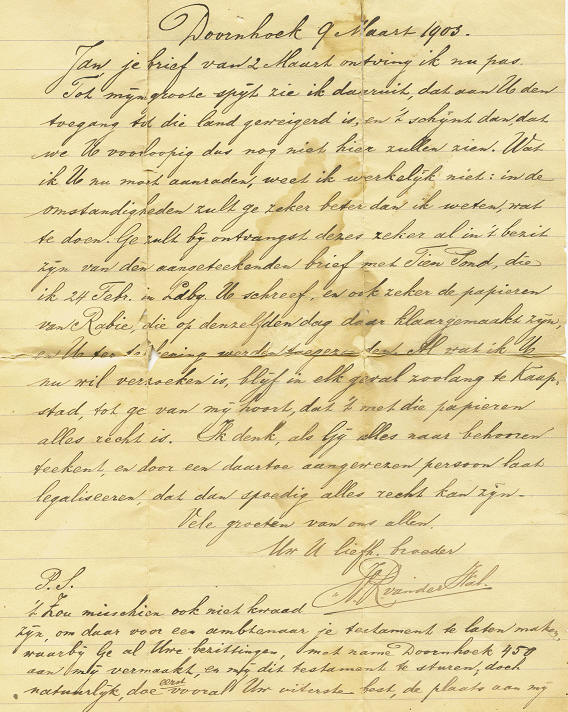 Doornhoek 9 Maart 1903.
Jan, je brief van 2 Maart ontving ik nu pas.
Tot myn groote spyt zie ik daaruit, dat aan U den
toegang tot die land geweigerd is, en 't schynt dan, dat
we U voorloopig dus nog niet hier zullen zien. Wat
ik U nu moet aanraden, weet ik werkelyk niet: in de
omstandigheden zult ge zeker beter dan ik weten, wat
te doen. Ge zult by ontvangst dezes zeker al in 't bezit
zyn van den aangeteekenden brief met Tien Pond, die
ik 24 Febr. in Ldbg. U schreef, en ook zeker de papieren
van Rabie, die op denzelfden dag daar klaargemaakt zyn,
en U ter teekening werden toegezonden. Al wat ik U
nu wil verzoeken is, blyf in elk geval zoolang te Kaap-
stad, tot ge van my hoort, dat 't met die papieren
alles recht is. Ik denk, als Gy alles naar behooren
teekent, en door een daartoe aangewezen persoon laat
legaliseeren, dat dan spoedig alles recht kan zyn.
Vele groeten van ons allen.
Uw U liefh. broeder
van der Wal.
P.S.
't Zou misschien ook niet kwaad
zyn, om daar voor een ambtenaar je testament te laten maken,
waarby Ge al Uwe bezittingen, met name Doornhoek 959
aan my vermaakt, en my dit testament te sturen, doch
natuurlyk, doe eerst vooral Uw uiterste best, de plaats aan my